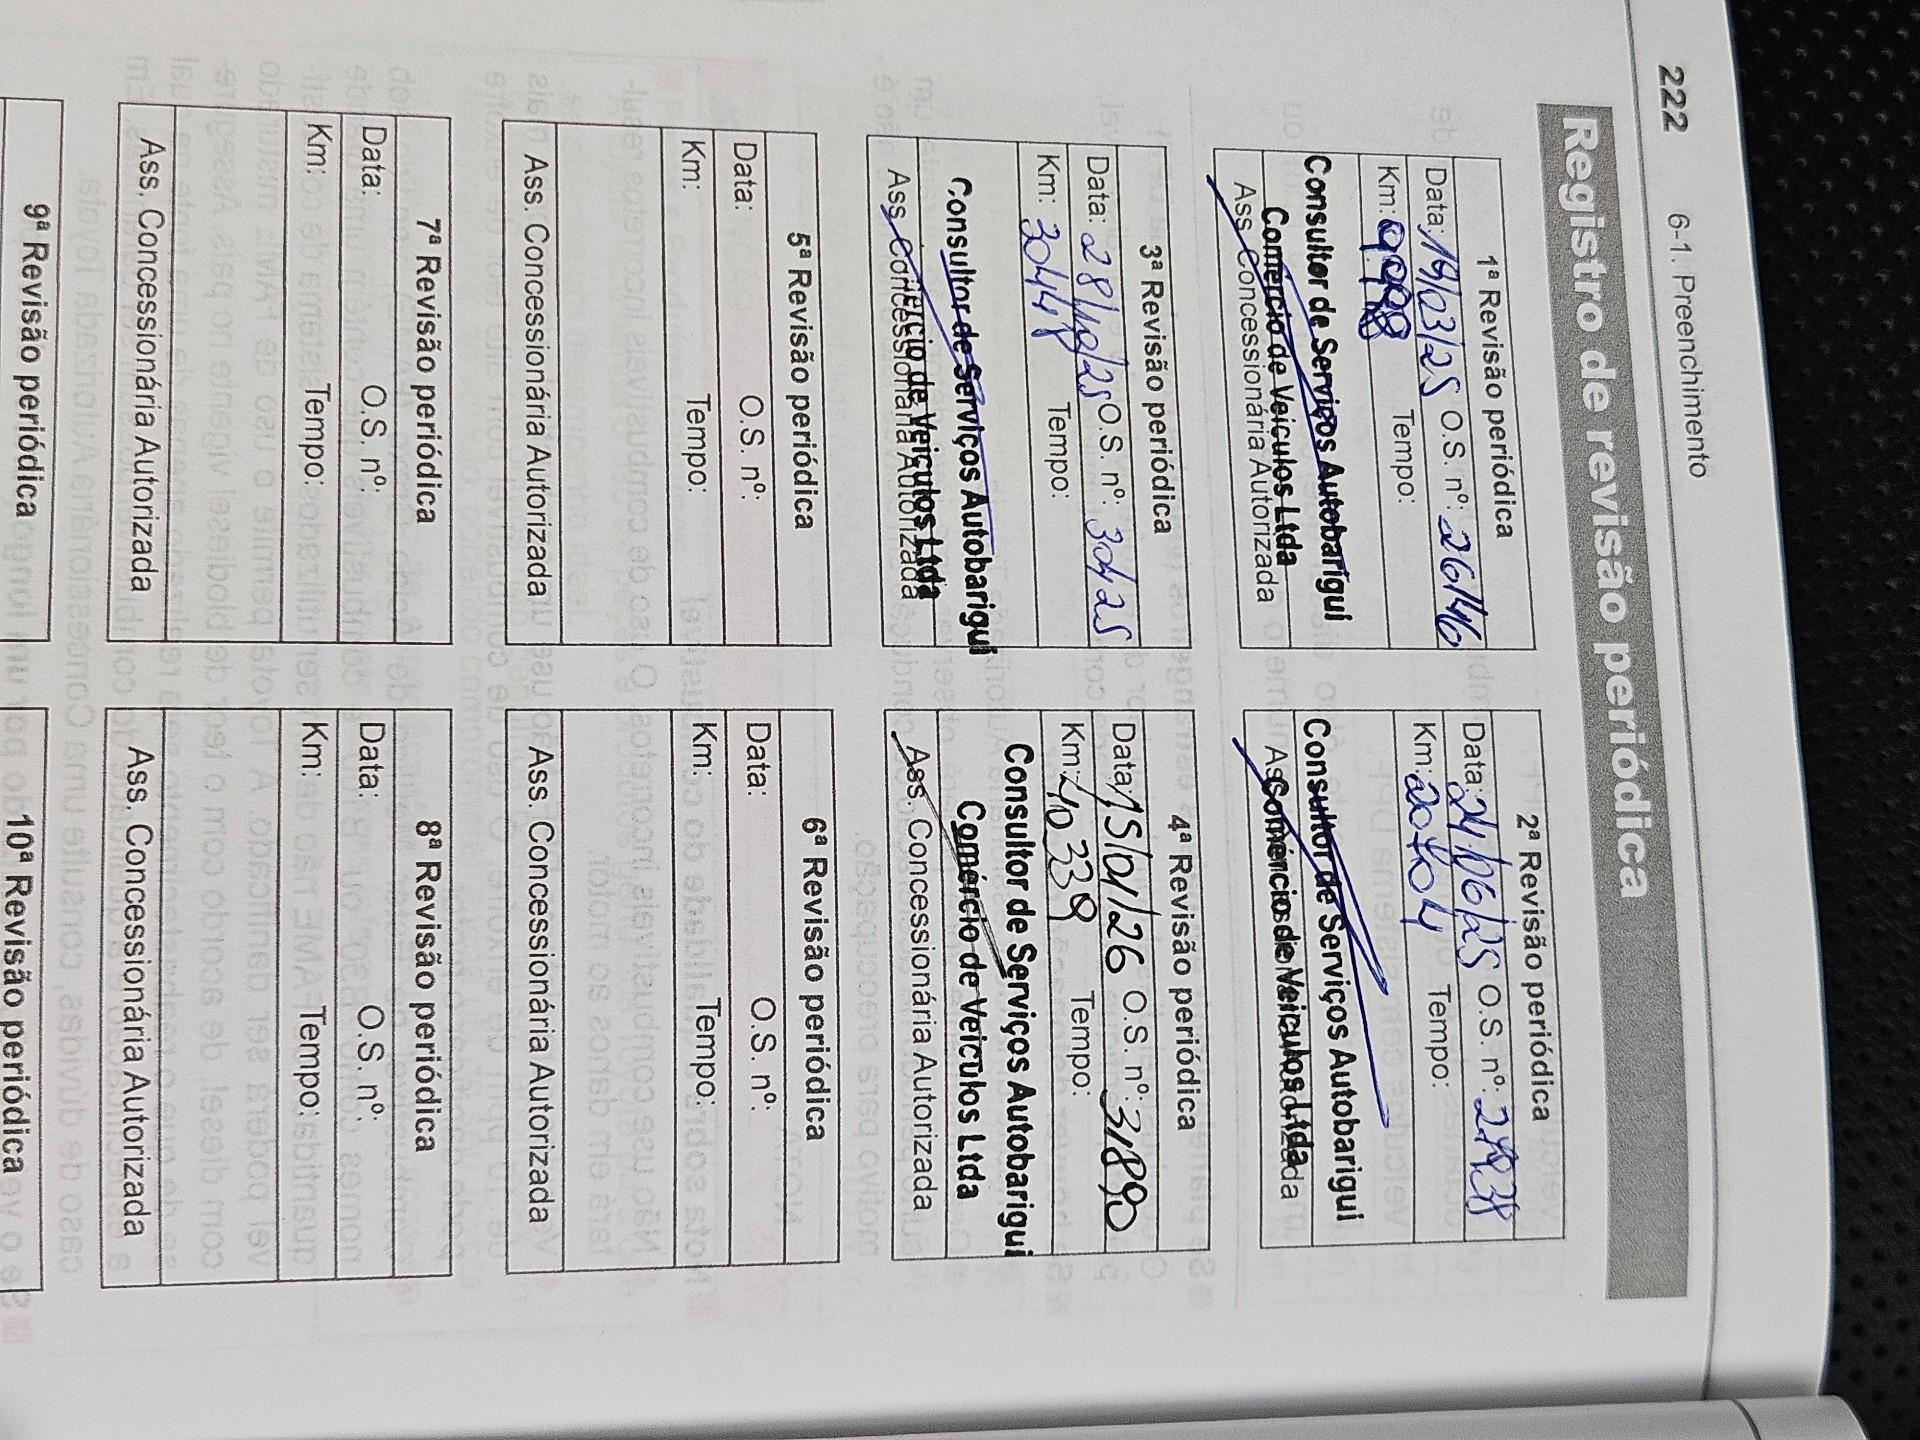 222 6-1. Preenchimento
Registro de revisão periódica
1ª Revisão periódica
Data: 19/03/25 O.S. nº: 26146
Km: Tempo:
Consultor de Serviços Autobarigui
Comércio de Veiculos Ltda
Ass. Concessionária Autorizada
2ª Revisão periódica
Data: 24/06/25 O.S. nº:
Km: 20704 Tempo:
Consultor de Serviços Autobarigui
Comércio de Veiculos Ltda
3ª Revisão periódica
Data: 28/10/25 O.S. nº: 30425
Km: 30448 Tempo:
Consultor de Serviços Autobarigui
Comércio de Veiculos Ltda
Ass. Concessionária Autorizada
4ª Revisão periódica
Data: 15/01/26 O.S. nº: 31890
Km: 40339 Tempo:
Consultor de Serviços Autobarigui
Comércio de Veiculos Ltda
Ass. Concessionária Autorizada
5ª Revisão periódica
Data: O.S. nº:
Km: Tempo:
Ass. Concessionária Autorizada
6ª Revisão periódica
Data: O.S. nº:
Km: Tempo:
Ass. Concessionária Autorizada
7ª Revisão periódica
Data: O.S. nº:
Km: Tempo:
Ass. Concessionária Autorizada
8ª Revisão periódica
Data: O.S. nº:
Km: Tempo:
Ass. Concessionária Autorizada
9ª Revisão periódica
10ª Revisão periódica